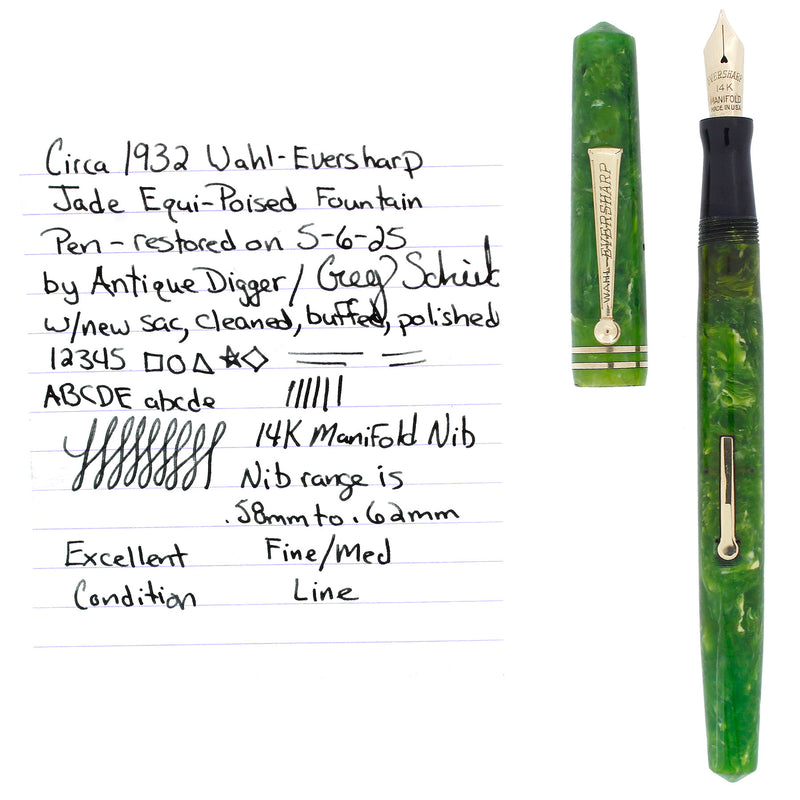 Circa 1932 Wahl-Eversharp
Jade Equi-Poised Fountain
Pen - restored on 5-6-25
by Antique Digger / Greg
w/new sac, cleaned, buffed, polished
12345
ABCDE abcde
14K Manifold Nib
Nib range is
.58mm to .62mm
Excellent Fine/Med
Condition Line
WAHL-EVERSHARP
EVERSHARP
14K
MANIFOLD
MADE IN USA